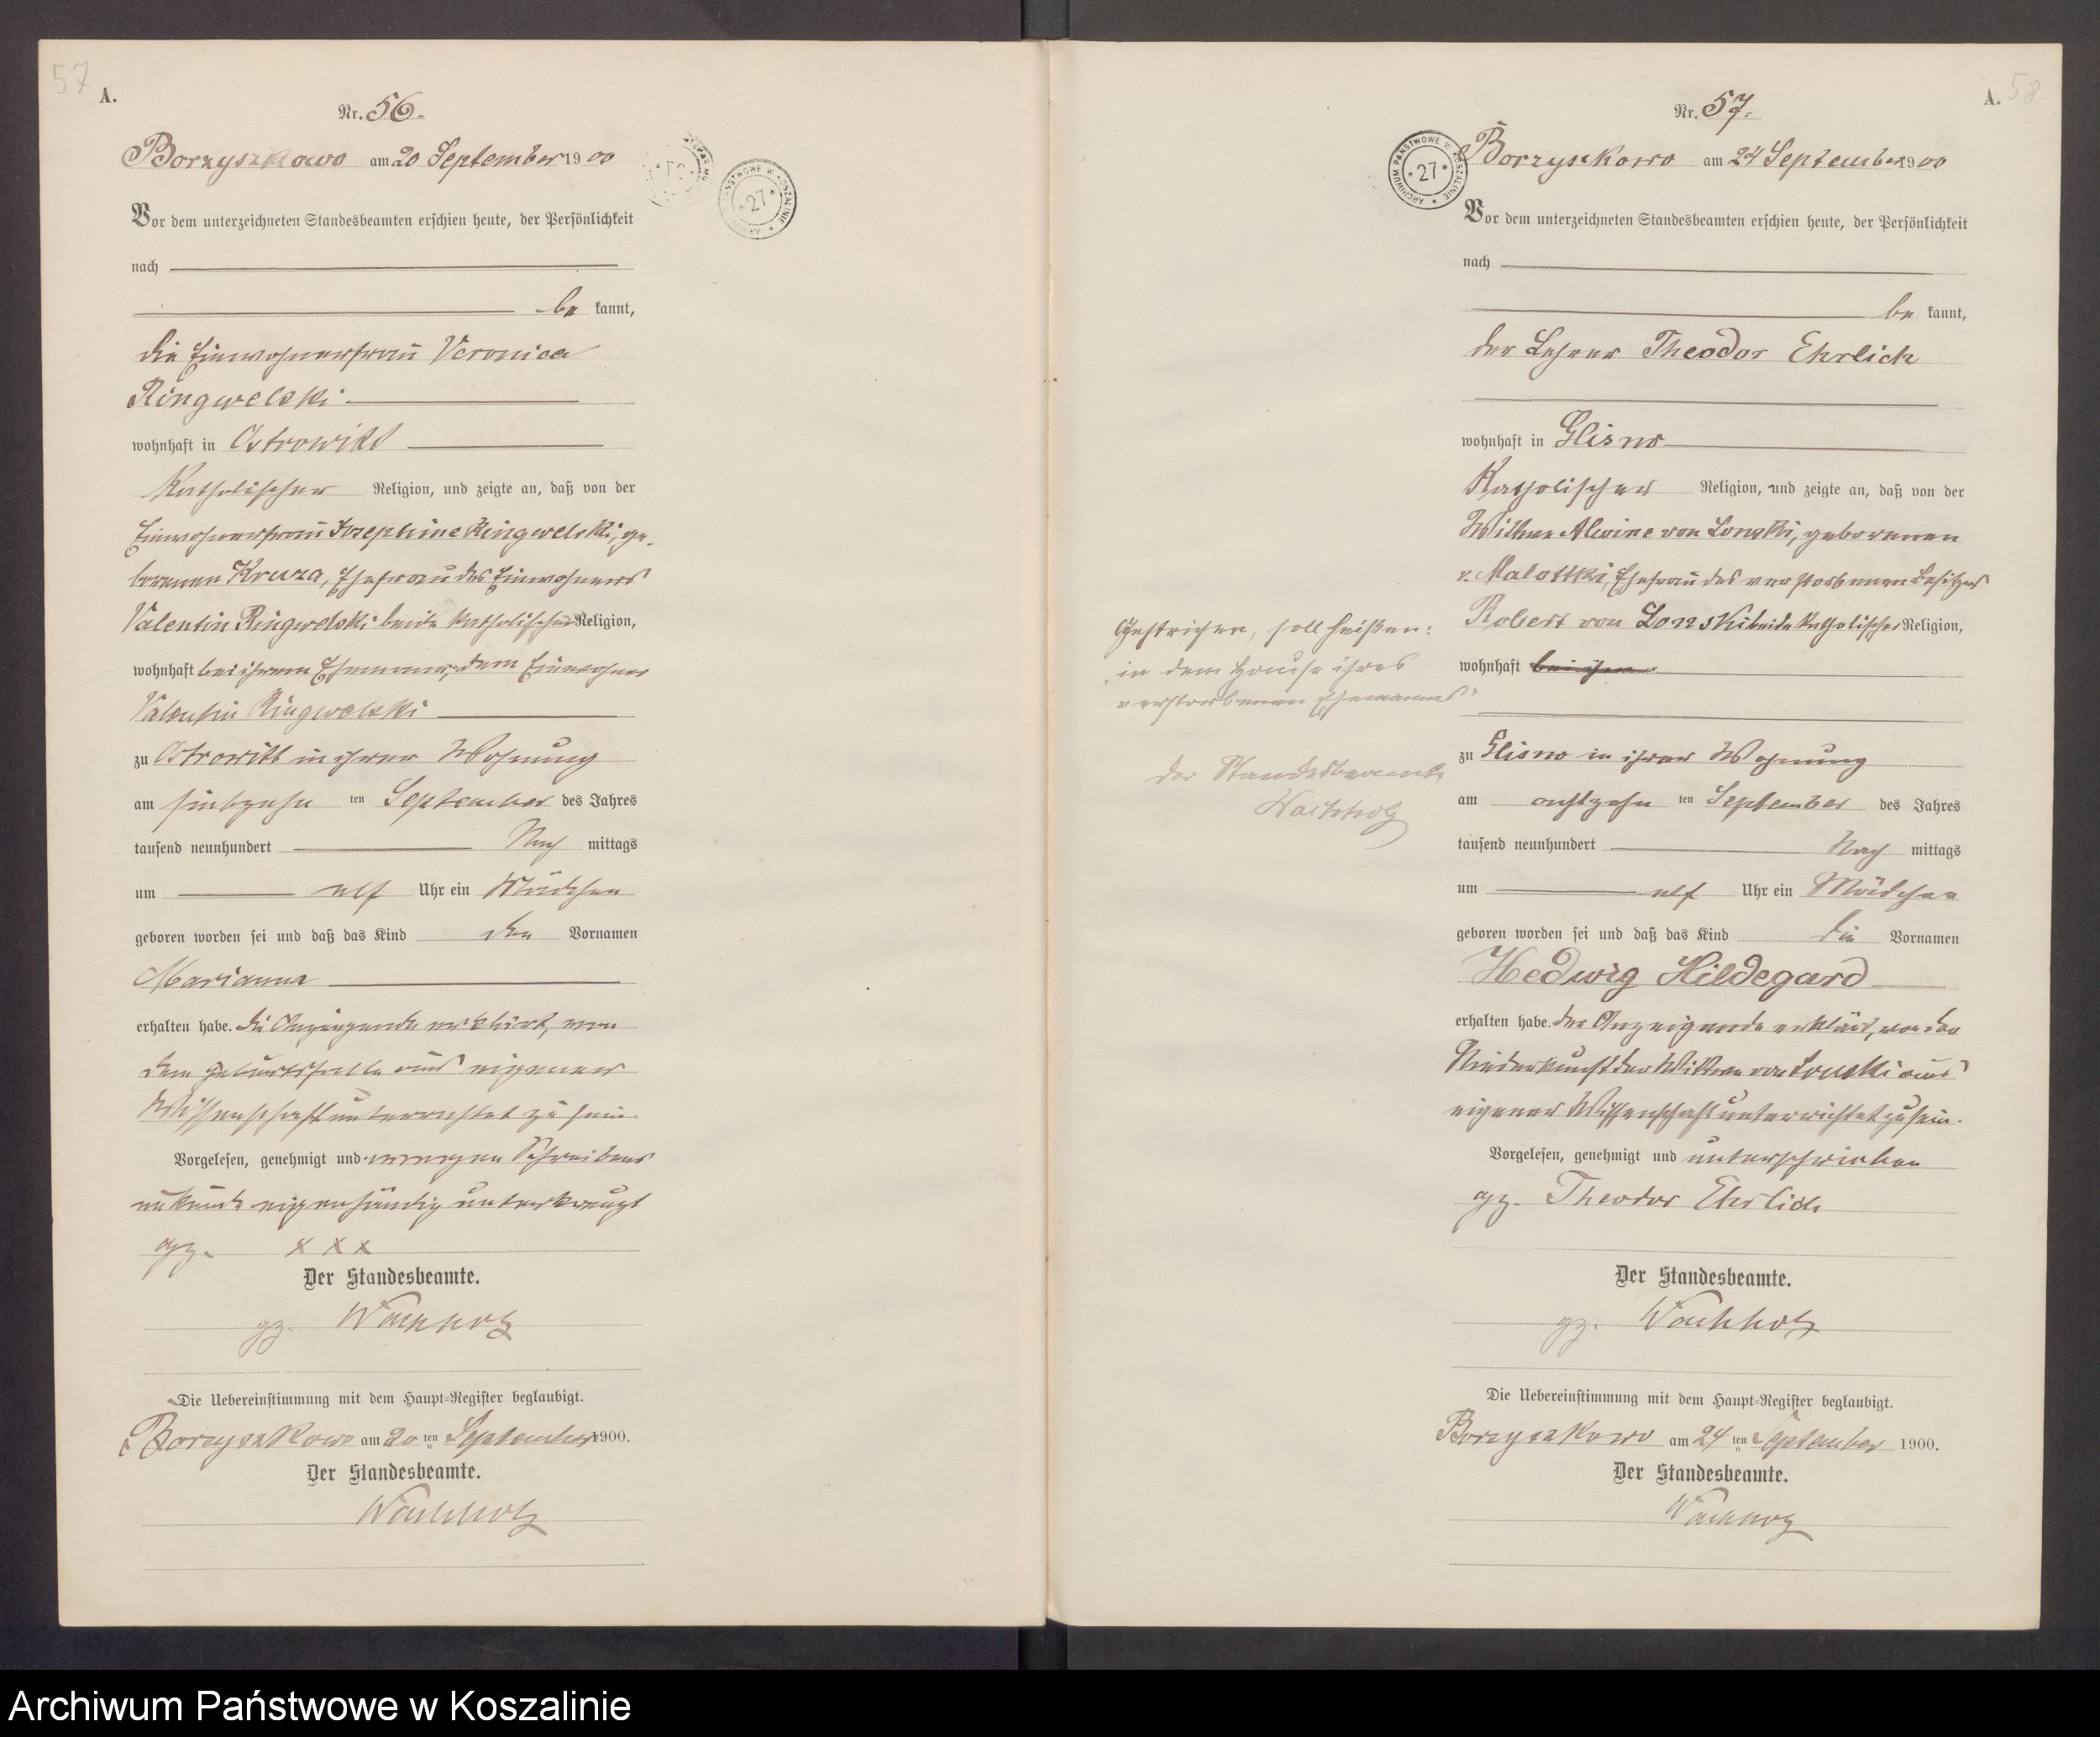 57
A.
Nr. 56.
Borzyszkowo am 20 September 1900
Vor dem unterzeichneten Standesbeamten erschien heute, der Persönlichkeit
nach
be kannt,
die Einwohnerfrau Veronica
Ringwelski
wohnhaft in Ostrowitt
Katholischer Religion, und zeigte an, daß von der
Einwohnerfrau Josephine Ringwelski, ge-
borenen Kruza, Ehefrau des Einwohners
Valentin Ringwelski beide katholischer Religion,
wohnhaft bei ihrem Ehemann, dem Einwohner
Valentin Ringwelski
zu Ostrowitt in ihrer Wohnung
am siebzehn ten September des Jahres
tausend neunhundert Nach mittags
um elf Uhr ein Mädchen
geboren worden sei und daß das Kind den Vornamen
Marianna
erhalten habe. Die Anzeigende erklärt, von
dem Geburtsfalle aus eigener
Wissenschaft unterrichtet zu sein
Vorgelesen, genehmigt und wegen Schreibens
unkunde eigenhändig unterkreuzt
gz. x x x
Der Standesbeamte.
gz. Wachholz
Die Uebereinstimmung mit dem Haupt-Register beglaubigt.
Borzyszkowo am 20 ten September 1900.
Der Standesbeamte.
Wachholz
ARCHIWUM PAŃSTWOWE W KOSZALINIE
* 27 *
58
A.
Nr. 57.
Borzyszkowo am 24 September 1900
Vor dem unterzeichneten Standesbeamten erschien heute, der Persönlichkeit
nach
be kannt,
der Lehrer Theodor Ehrlich
wohnhaft in Glisno
Katholischer Religion, und zeigte an, daß von der
Wittwe Alwine von Lonski, geborenen
v. Malottki, Ehefrau des verstorbenen Besitzers
Robert von Lonski beide katholischer Religion,
wohnhaft bei ihrem
zu Glisno in ihrer Wohnung
am achtzehn ten September des Jahres
tausend neunhundert Nach mittags
um elf Uhr ein Mädchen
geboren worden sei und daß das Kind die Vornamen
Hedwig Hildegard
erhalten habe. Der Anzeigende erklärt, von der
Niederkunft der Wittwe von Lonski aus
eigener Wissenschaft unterrichtet zu sein.
Vorgelesen, genehmigt und unterschrieben
gz. Theodor Ehrlich
Der Standesbeamte.
gz. Wachholz
Die Uebereinstimmung mit dem Haupt-Register beglaubigt.
Borzyszkowo am 24 ten September 1900.
Der Standesbeamte.
Wachholz
Gestrichen, soll heißen:
"in dem Hause ihres
verstorbenen Ehemannes"
Der Standesbeamte
Wachholz
ARCHIWUM PAŃSTWOWE W KOSZALINIE
* 27 *
Archiwum Państwowe w Koszalinie